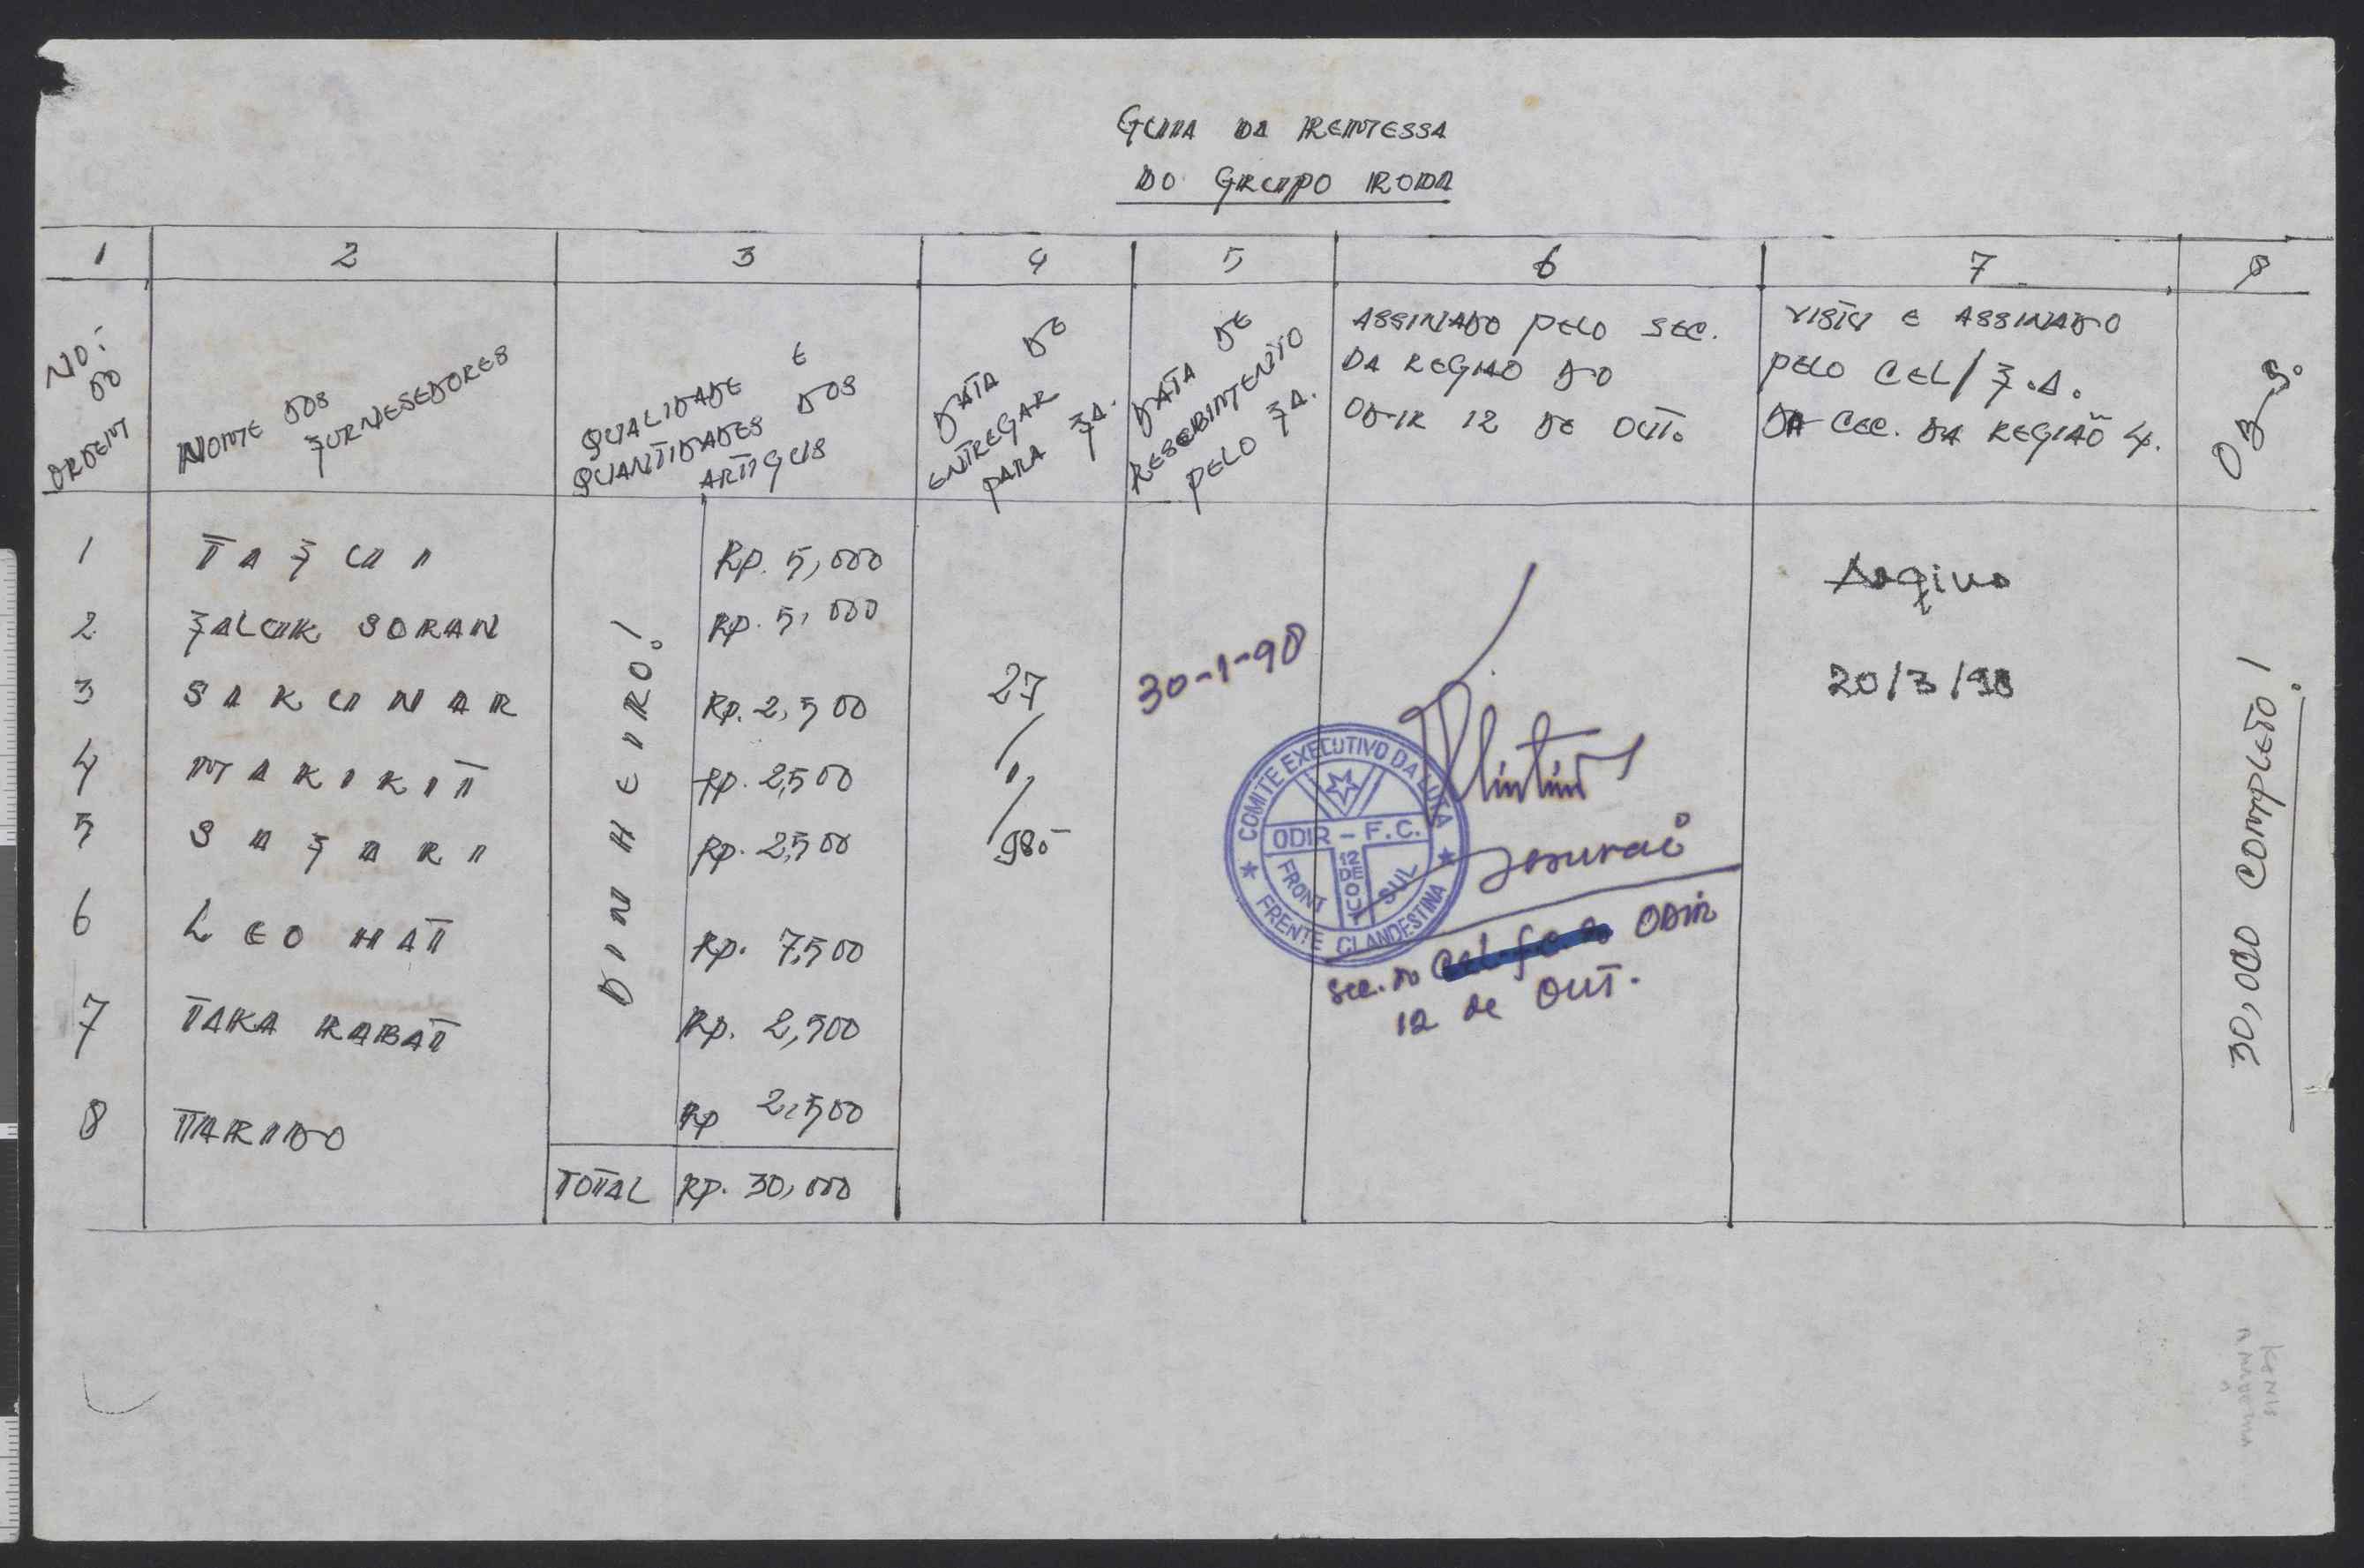 GUIA DA REMESSA
DO GRUPO RODA
1 2 3 4 5 6 7 8
NO: DO ORDEM
NOME DOS FURNESEDORES
QUALIDADE E QUANTIDADES DOS ARTIGUS
DATA DE ENTREGAR PARA FA.
DATA DE RESEBIMENTO PELO FA.
ASSINADO PELO SEC.
DA REGIAO DO
ODIR 12 DE OUT.
VISTU E ASSINADO
PELO CEL/F.A.
DA CEC. DA REGIAÕ 4.
OBS.
DINHEIRO!
1 TAFUI Rp. 5,000
2 FALUK SORAN Rp. 5,000
3 SAKUNAR Rp. 2,500
4 MARIKIT Rp. 2,500
5 SAFARI Rp. 2,500
6 LEO HAT Rp. 7,500
7 TAKA RABAT Rp. 2,500
8 TARIDO Rp 2,500
TOTAL Rp. 30,000
27/1/98
30-1-98
COMITE EXECUTIVO DA LUTA
ODIR - F.C.
12 DE OUT
FRONT SUL
FRENTE CLANDESTINA
Sec. do ODIR
12 de OUT.
20/3/98
30,000 COMPLETO!